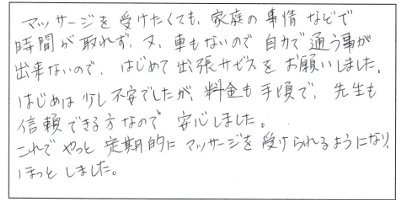 マッサージを受けたくても、家庭の事情などで
時間が取れず、又、車もないので自力で通う事が
出来ないので、はじめて出張サービスをお願いしました。
はじめは少し不安でしたが、料金も手頃で、先生も
信頼できる方なので安心しました。
これでやっと定期的にマッサージを受けられるようになり、
ほっとしました。